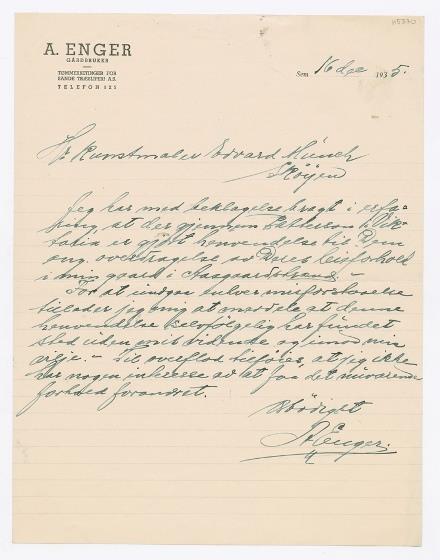 K5370
A. ENGER
GÅRDBRUKER
TØMMERKJØPER FOR
SANDE TRÆSLIPERI A.S.
TELEFON 525
Sem 16 dec 1935.
Hr. Kunstmaler Edvard Munch
Skøyen
Jeg har med beklagelse bragt i erfa-
ring, at der gjennem Vik-
toria er gjort henvendelse til Dem
ang. overtragelse av Deres leieforhold
i min gaard i Aasgaardstrand. –
For at undgaa enhver misforstaaelse
tillader jeg mig at meddele at denne
henvendelse selvfølgelig har fundet
sted uden mit vidende og imod min
vilje. – Til overflod tilføies, at jeg ikke
har nogen interesse av at faa det nuværende
forhold forandret.
Ærbødigst
A. Enger.